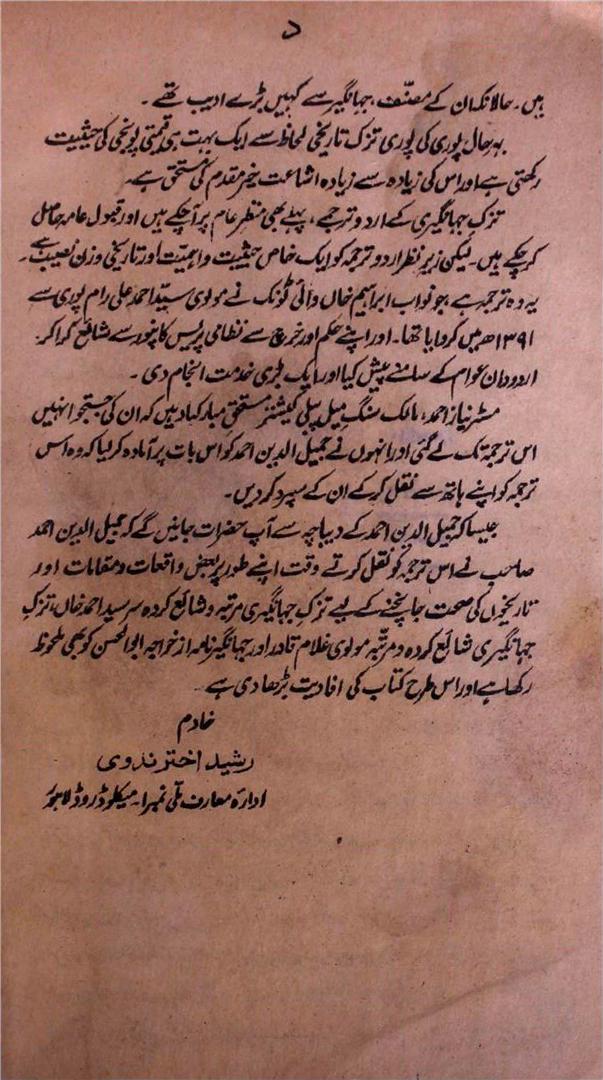 د
ہیں۔ حالانکہ ان کے مصنّف، جہانگیر سے کہیں بڑے ادیب تھے۔
بہرحال پوری کی پوری تزک تاریخی لحاظ سے ایک بہت ہی قیمتی پونجی کی حیثیت
رکھتی ہے اور اس کی زیادہ سے زیادہ اشاعت خیر مقدم کی مستحق ہے۔
تزکِ جہانگیری کے اردو ترجمے، پہلے بھی منظرِ عام پر آچکے ہیں اور قبول عامہ حاصل
کر چکے ہیں۔ لیکن زیرِ نظر اردو ترجمہ کو ایک خاص حیثیت و اہمیّت اور تاریخی وزن نصیب ہے۔
یہ وہ ترجمہ ہے، جو نواب ابراہیم خاں والئی ٹونک نے مولوی سیّد احمد علی رام پوری سے
۱۳۹۱ھ میں کروایا تھا۔ اور اپنے حکم اور خرچ سے نظامی پریس کانپور سے شائع کرا کر
اردو دان عوام کے سامنے پیش کیا اور ایک بڑی خدمت انجام دی۔
مسٹر نیاز احمد، مالک سنگِ میل پبلی کیشنز مستحقِ مبارکباد ہیں کہ ان کی جستجو انہیں
اس ترجمہ تک لے گئی اور انہوں نے جمیل الدین احمد کو اس بات پر آمادہ کر لیا کہ وہ اس
ترجمہ کو اپنے ہاتھ سے نقل کر کے ان کے سپرد کر دیں۔
جیسا کہ جمیل الدین احمد کے دیباچہ سے آپ حضرات جانیں گے کہ جمیل الدین احمد
صاحب نے اس ترجمہ کو نقل کرتے وقت اپنے طور پر بعض واقعات و مقامات اور
تاریخوں کی صحت جاپنخنے کے لیے تزکِ جہانگیری مرتبہ و شائع کردہ سر سید احمد خاں، تزکِ
جہانگیری شائع کردہ و مرتّبہ مولوی غلام قادر اور جہانگیر نامہ از خواجہ ابوالحسن کو بھی ملحوظ
رکھا ہے اور اس طرح کتاب کی افادیت بڑھا دی ہے۔
خادم
رشید اختر ندوی
ادارہ معارف ملّی نمبر ۱۔ میکلوڈ روڈ لاہور